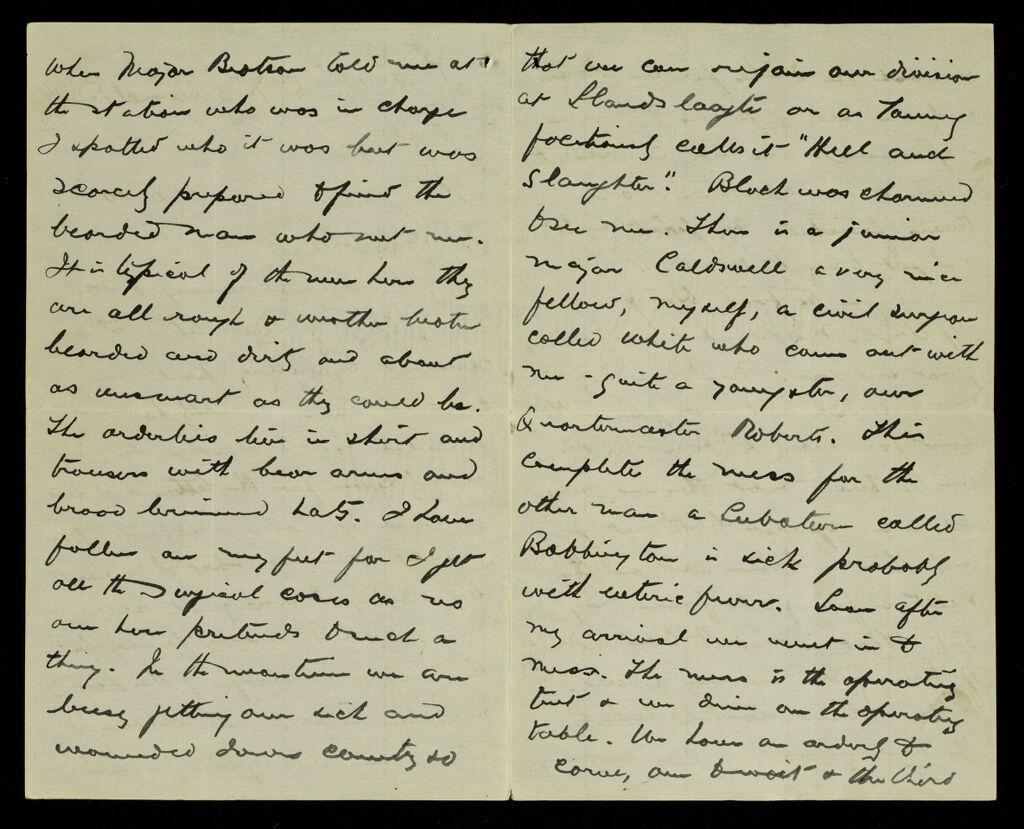 when Major Beatson told me at
the station who was in charge
I spotted who it was but was
scarcely prepared to find the
bearded man who met me.
It is typical of the men here they
are all rough & weather beaten
bearded and dirty and about
as unsmart as they could be.
The orderlies live in shirt and
trousers with bear arms and
broad brimmed hats. I have
fallen on my feet for I get
all the surgical cases as no
one here pretends to such a
thing. In the meantime we are
busy getting our sick and
wounded down country so
that we can rejoin our division
at Elandslaagte or as Tommy
facetiously calls it "Hell and
Slaughter". Bloch was charmed
to see me. There is a junior
major Caldwell a very nice
fellow, myself, a civil surgeon
called White who came out with
me - quite a youngster, our
Quartermaster Roberts. This
completes the mess for the
other man a Lieutenant called
Babbington is sick probably
with enteric fever. Soon after
my arrival we went in to
mess. The mess is the operating
tent & we dine on the operating
table. We have an orderly to
carve, one to wait & the third